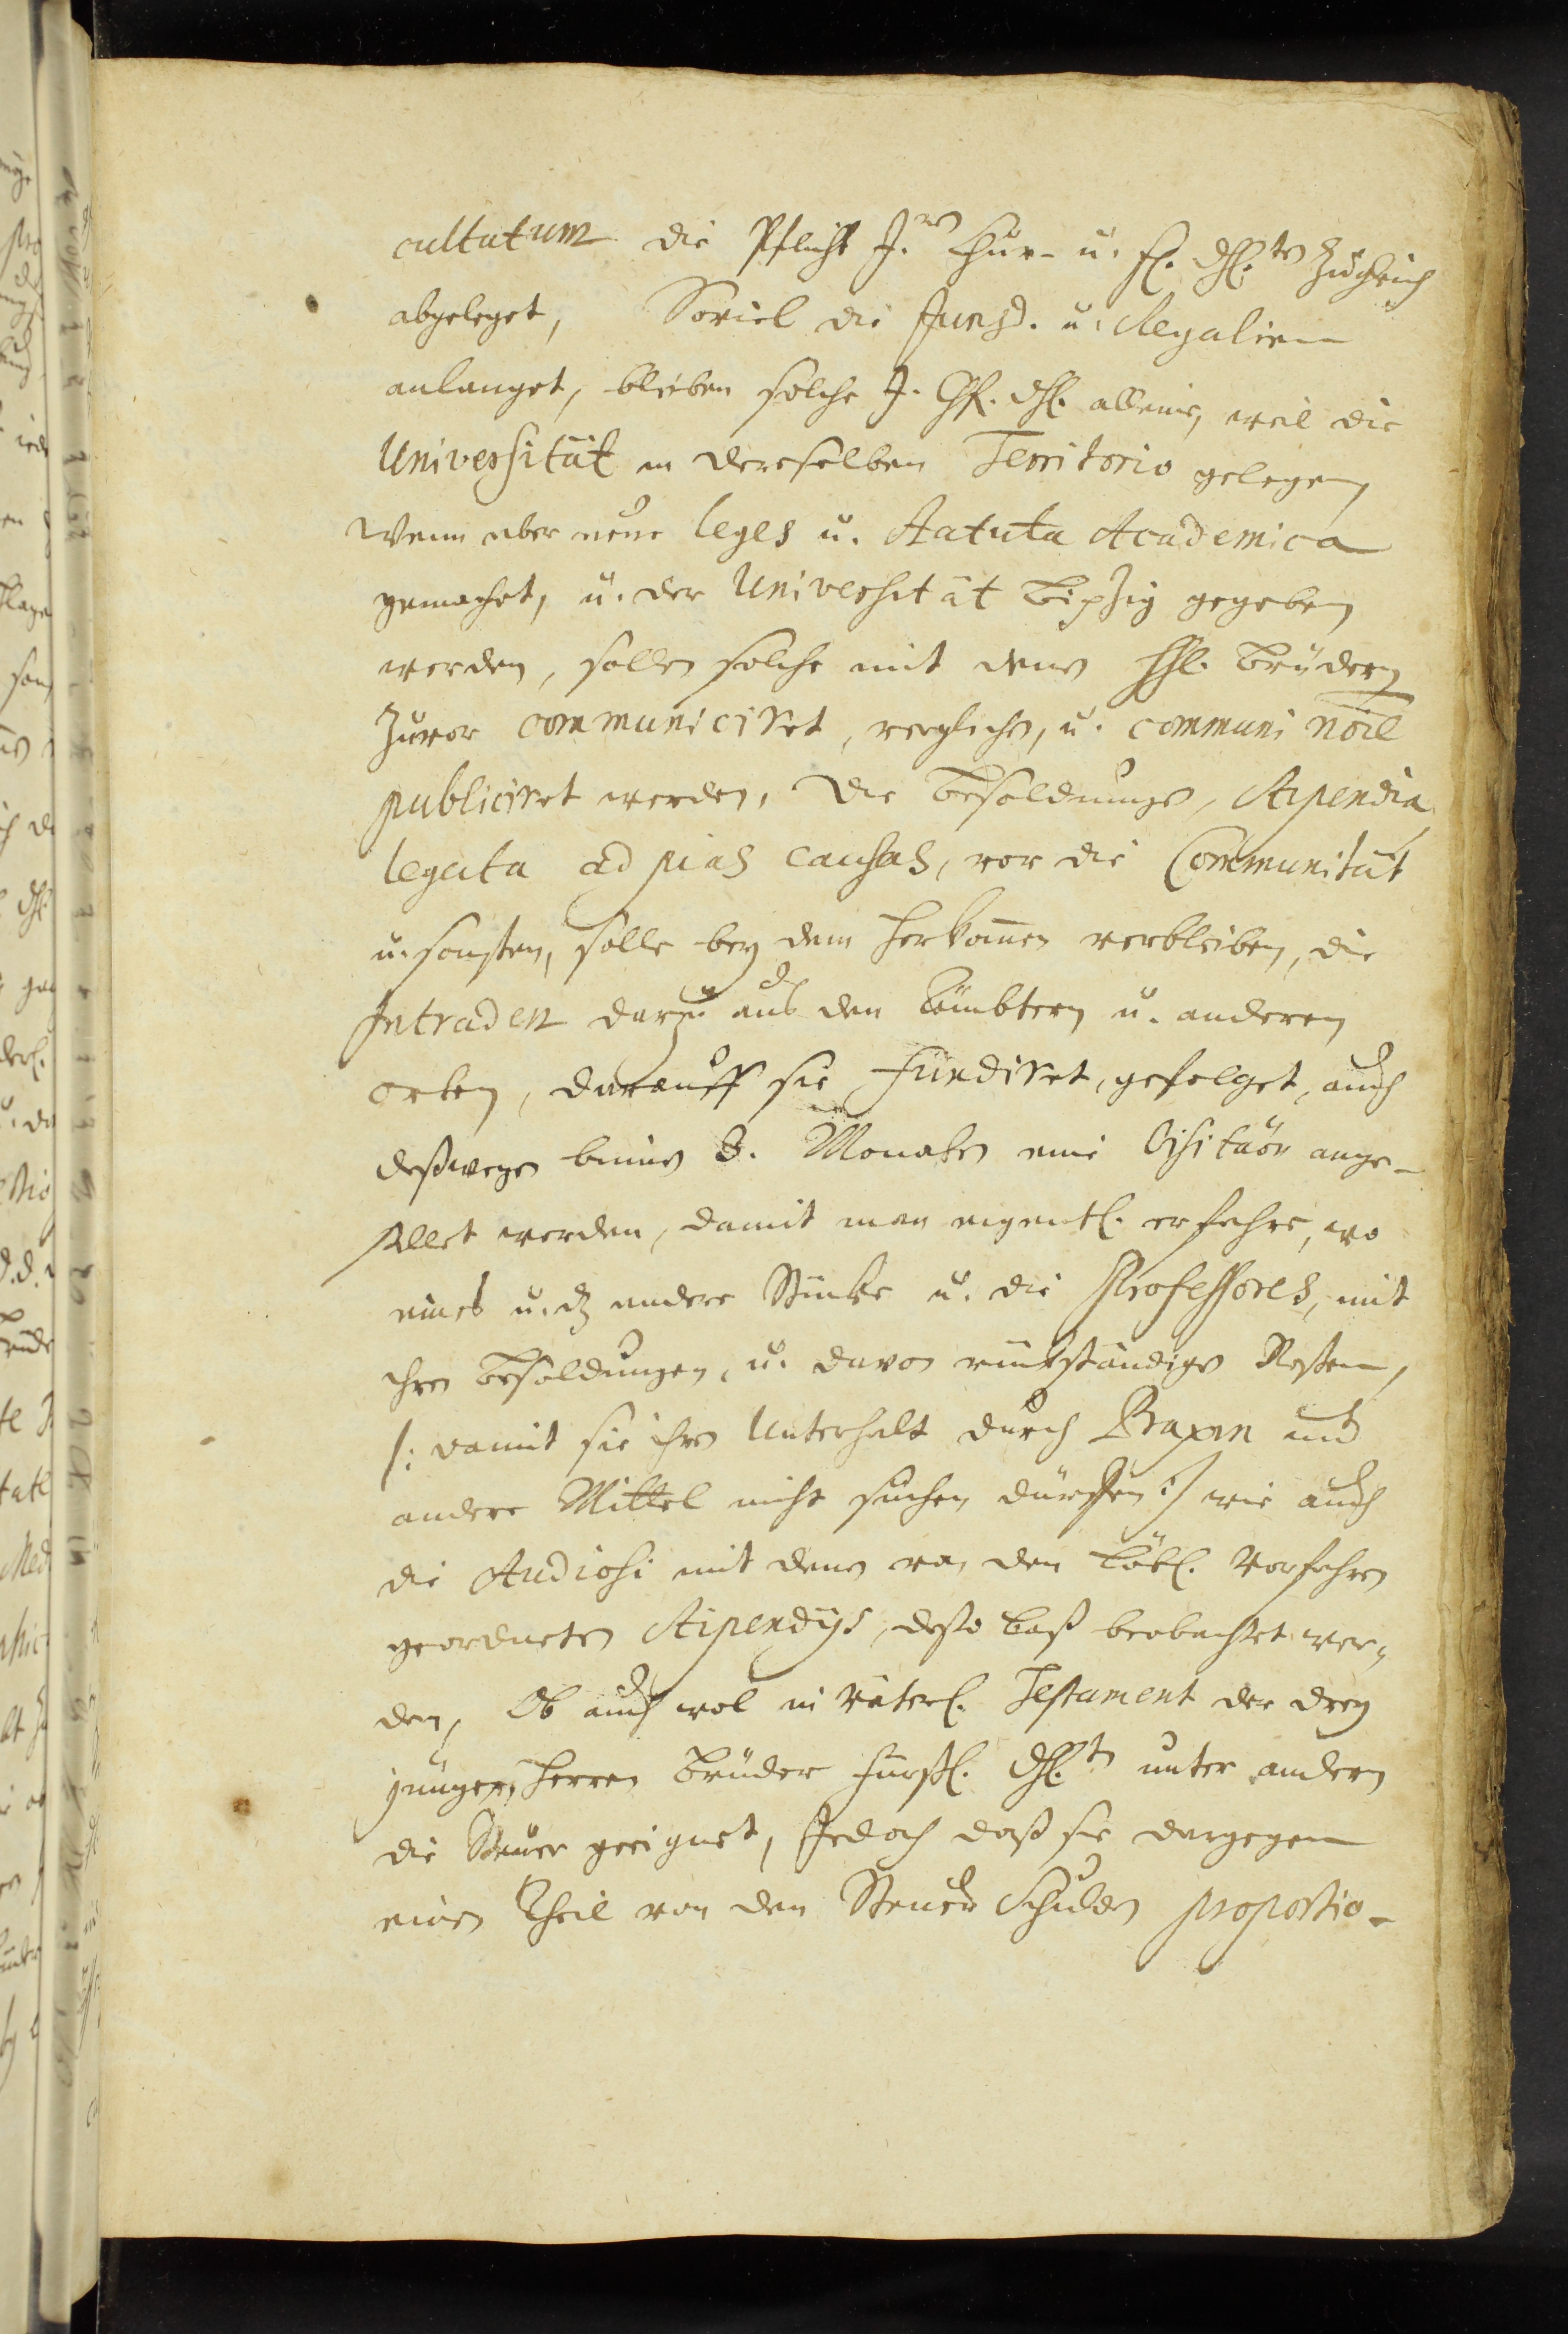 cultatum die Pflicht J.rer Chur- u. f. dhl.ten zugleich
abgeleget, Soviel die Jurisd. u. Regalien
anlanget, bleiben solche J. Chf. dhl. alleine, weil die
Universität in dereselben Territorio gelegen,
Wenn aber neue leges u. Statuta Academica
gemachet, u. der Universität Leipzig gegeben
werden, sollen solche mit denen Hhl. Brüdern
zuvor communiciret, verglichen, u. communi nõie
publiciret werden, Die Besoldungen, Stipendia
legata ad pias causas, vor die Communität
u. sonsten, solle bey dem herkom̄en verbleiben, die
Intraden darzu aus den Aembtern u. anderen
orten, darauff sie fundiret, gefolget, auch
deßwegen binnen 3. Monaten eine Visitaõn ange-
stellet werden, damit man eigentl. erfahre, wo
eines u. dz andere Stücke u. die Professores, mit
ihren Besoldungen, u. davon rückständigen Resten,
/: damit sie ihren Unterhalt durch Praxin und
andere Mittel nicht suchen dürffen :/ wie auch
die Studiosi mit denen von den Löbl. Vorfahren
geordneten Stipendijs, desto baß beobachtet wer-
den, Ob auch wol in Väterl. Testament der drey
jüngern Herren Brüder Fürstl. dhl.ten unter andern
die Steuer geeignet, Jedoch daß sie dargegen
einen Theil von den Steuer Schulden proportio-